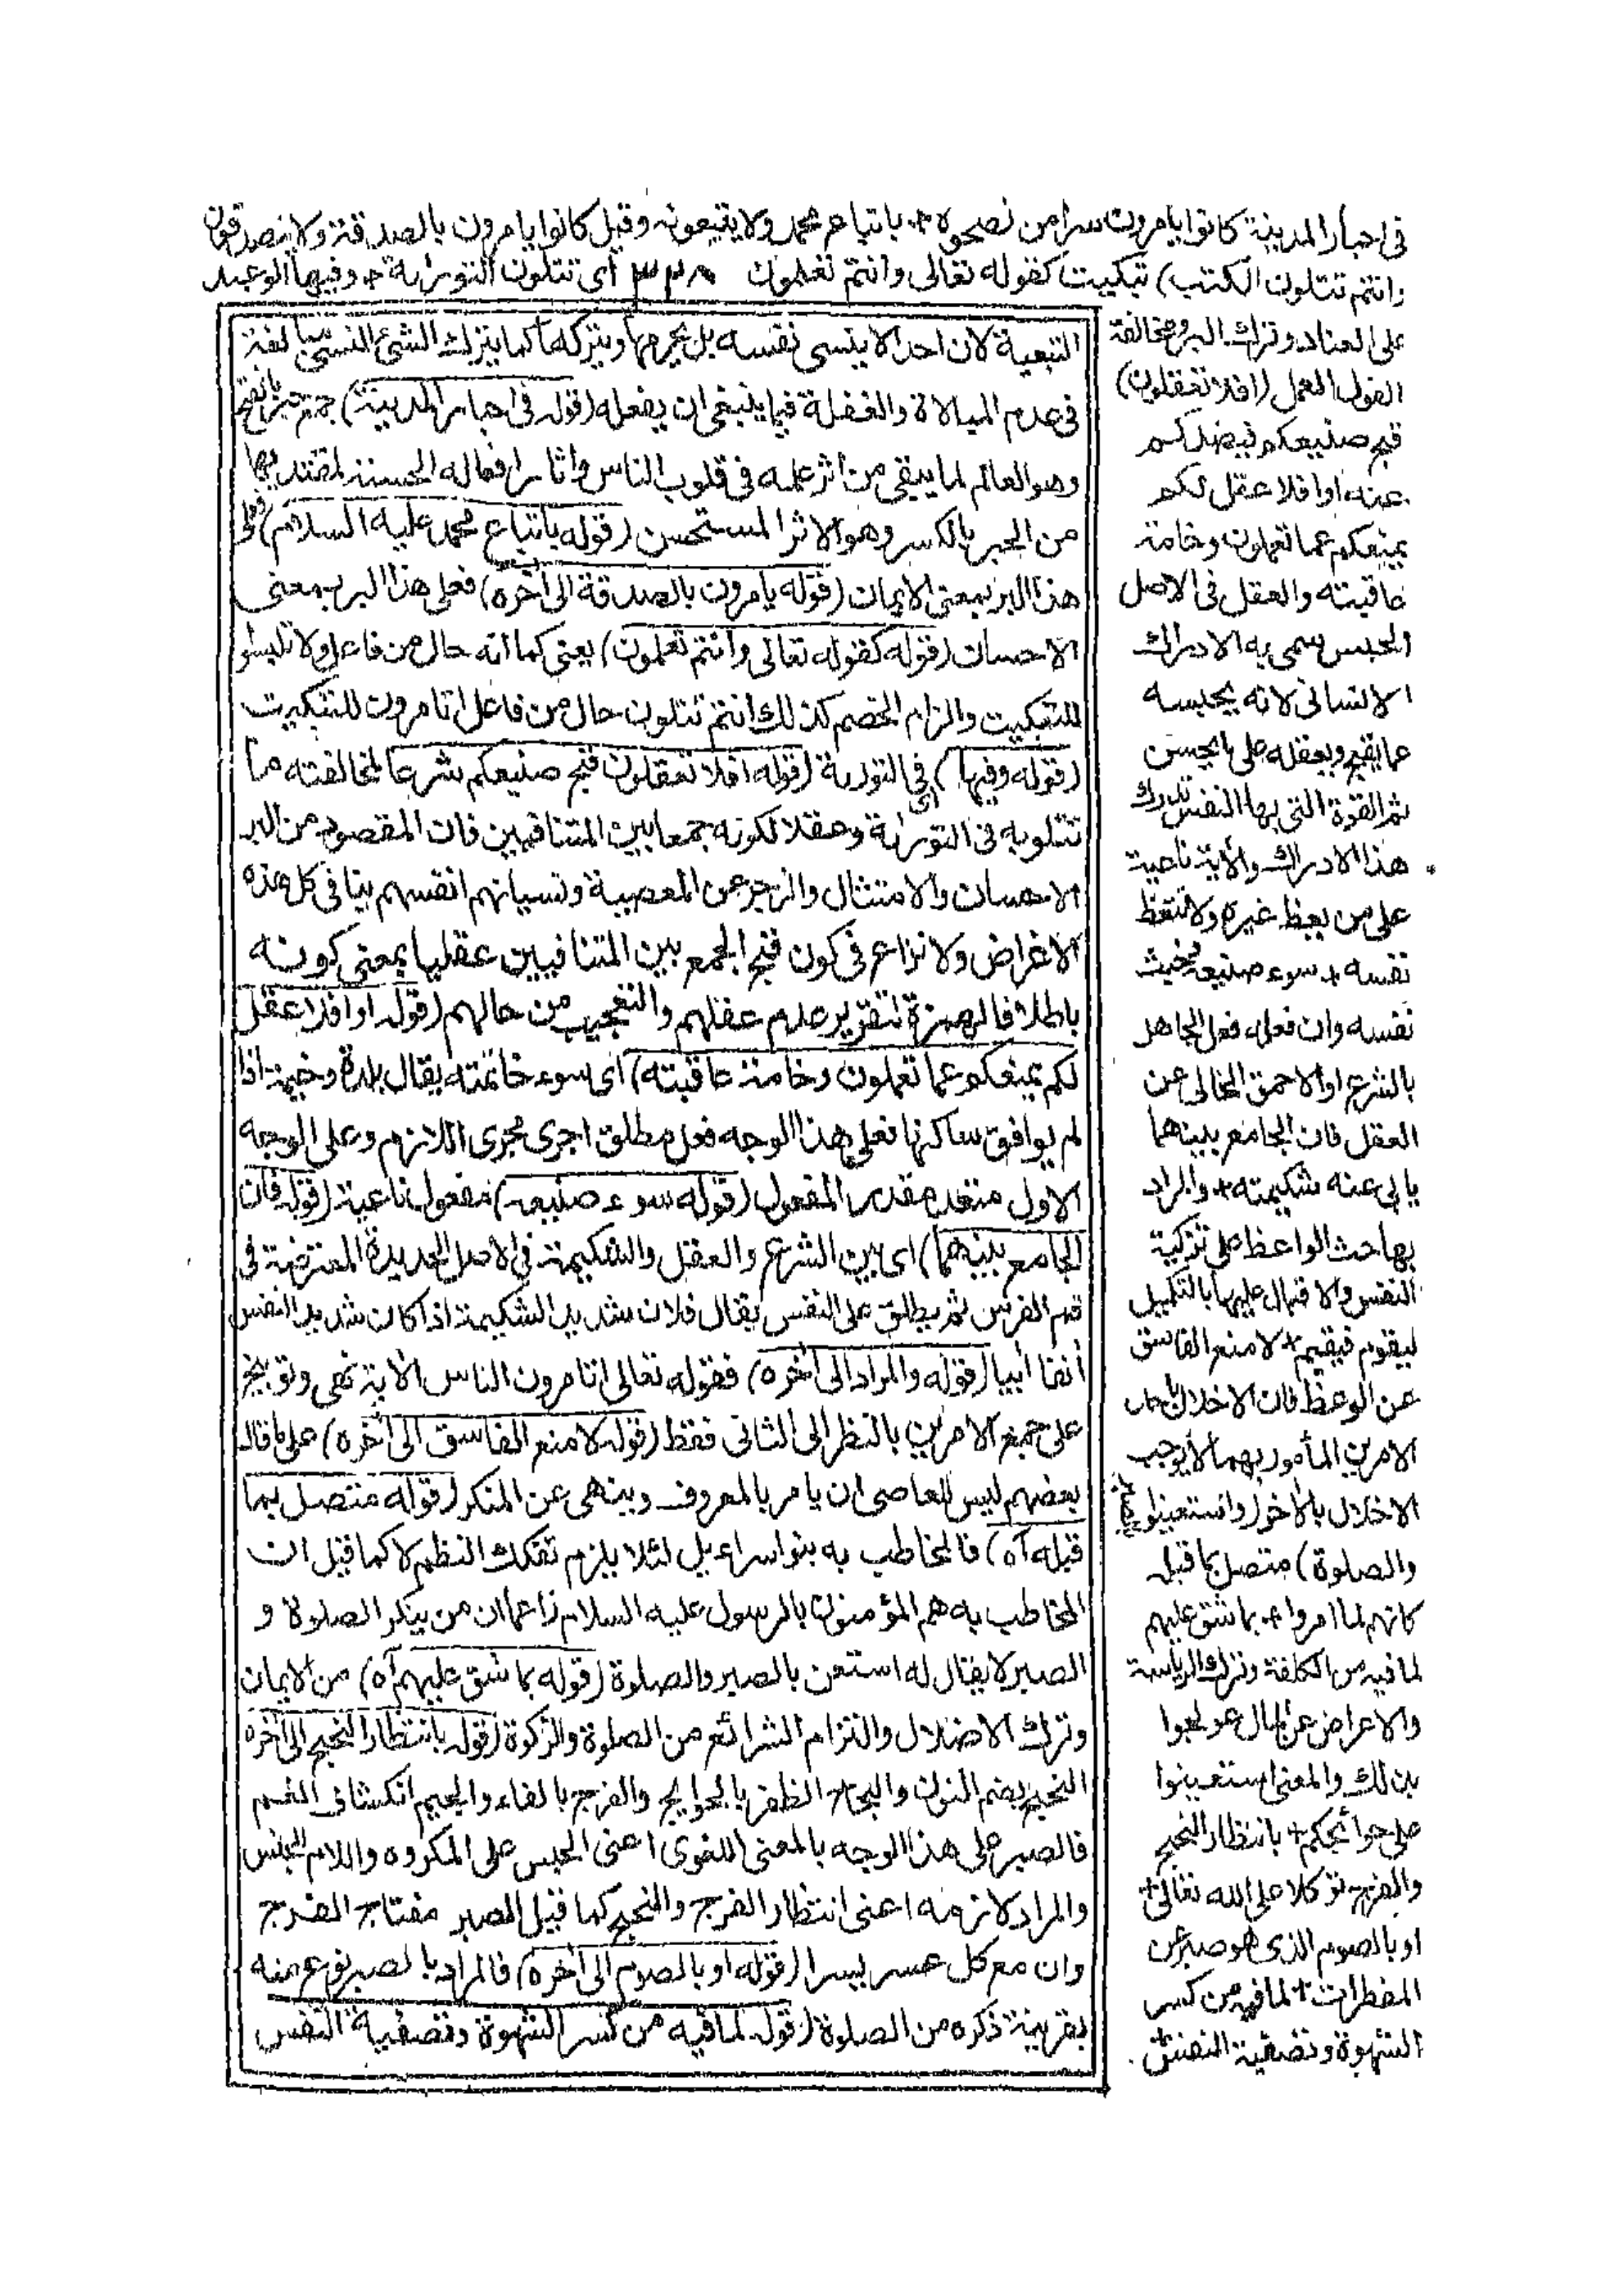 فى احبار المدينة كانوا يأمرون سرا من نصحوه + باتباع محمد ولا يتبعونه وقيل كانوا يأمرون بالصدقة ولا يتصدقون
(وانتم تتلون الكتب) تبكيت كقوله تعالى وانتم تعلمون ٣٣٨ أى تتلون التورية + وفيها الوعيد
على العناد وترك البر ومخالفة
القول العمل (افلا تعقلون)
قبح صنيعكم فيصدكم
عنه او افلا عقل لكم
يمنعكم عما تعملون وخامة
عاقبته والعقل فى الاصل
الحبس سمى به الادراك
الانسانى لانه يحبسه
عما يقبح ويعقله على ما يحسن
ثم القوة التى بها النفس تدرك
هذا الادراك والآية ناعية
على من يعظ غيره ولا يتعظ
نفسه + سوء صنيعه وخبث
نفسه وان فعله فعل الجاهل
بالشرع او الاحمق الخالى عن
العقل فان الجامع بينهما
يأبى عنه شكيمته + والمراد
بها حث الواعظ على تزكية
النفس والاقبال عليها بالتكميل
ليقوم فيقيم + لا منع الفاسق
عن الوعظ فان الاخلال باحد
الامرين المأمور بهما لا يوجب
الاخلال بالآخر (واستعينوا بالصبر
والصلوة) متصل بما قبله
كانهم لما امروا + بما شق عليهم
لما فيه من الكلفة وترك الرياسة
والاعراض عن المال عولجوا
بذلك والمعنى استعينوا
على حوائجكم + بانتظار النجح
والفرج توكلا على الله تعالى +
او بالصوم الذى هو صبر عن
المفطرات + لما فيه من كسر
الشهوة وتصفية النفس
التبعية لان احدا لا ينسى نفسه بل يحرمها ويتركها كما يترك الشئ المنسى مبالغة
فى عدم المبالاة والغفلة فيما ينبغى ان يفعله (قوله فى احبار المدينة) جمع حبر بالفتح
وهو العالم لما يبقى من اثر علمه فى قلوب الناس وآثار افعاله الحسنة المقتدى بها
من الحبر بالكسر وهو الاثر المستحسن (قوله باتباع محمد عليه السلام) فعلى
هذا البر بمعنى الايمان (قوله يأمرون بالصدقة الى آخره) فعلى هذا البر بمعنى
الاحسان (قوله كقوله تعالى وانتم تعلمون) يعنى كما انه حال من فاعل ولا تلبسوا
للتبكيت والزام الخصم كذلك انتم تتلون حال من فاعل اتأمرون للتبكيت
(قوله وفيها) اى فى التورية (قوله افلا تعقلون قبح صنيعكم شرعا لمخالفته ما
تتلونه فى التورية وعقلا لكونه جمعا بين المتنافيين فان المقصود من البر
الاحسان والامتثال والزجر عن المعصية ونسيانهم انفسهم ينافى كل هذه
الاغراض ولا نزاع فى كون قبح الجمع بين المتنافيين عقليا بمعنى كونه
باطلا فالهمزة لتقرير عدم عقلهم والتعجيب من حالهم (قوله او افلا عقل
لكم يمنعكم عما تعملون وخامة عاقبته) اى سوء خاتمته يقال بلدة وخيمة اذا
لم يوافق ساكنها فعلى هذا الوجه فعل مطلق اجرى مجرى اللازم وعلى الوجه
الاول متعد مقدر المفعول (قوله سوء صنيعه) مفعول ناعية (قوله فان
الجامع بينهما) اى بين الشرع والعقل والشكيمة فى الاصل الحديدة المعترضة فى
فم الفرس ثم يطلق على النفس يقال فلان شديد الشكيمة اذا كان شديد النفس
أنفا أبيا (قوله والمراد الى آخره) فقوله تعالى اتأمرون الناس الآية نهى وتوبيخ
على جميع الامرين بالنظر الى الثانى فقط (قوله لا منع الفاسق الى آخره) على ما قاله
بعضهم ليس للعاصى ان يامر بالمعروف وينهى عن المنكر (قوله متصل بما
قبله آه) فالمخاطب به بنو اسراءيل لئلا يلزم تفكك النظم لا كما قيل ان
المخاطب به هم المؤمنون بالرسول عليه السلام زاعما ان من ينكر الصلوة و
الصبر لا يقال له استعن بالصبر والصلوة (قوله بما شق عليهم آه) من الايمان
وترك الاضلال والتزام الشرائع من الصلوة والزكوة (قوله بانتظار النجح الى آخره
النجح بضم النون والنجاح الظفر بالحوايج والفرج بالفاء والجيم انكشاف الغم
فالصبر على هذا الوجه بالمعنى اللغوى اعنى الحبس على المكروه واللام للجنس
والمراد لازمه اعنى انتظار الفرج والنجح كما قيل الصبر مفتاح الفرج
وان مع كل عسر يسرا (قوله او بالصوم الى آخره) فالمراد بالصبر نوع منه
بقرينة ذكره من الصلوة (قوله لما فيه من كسر الشهوة وتصفية النفس